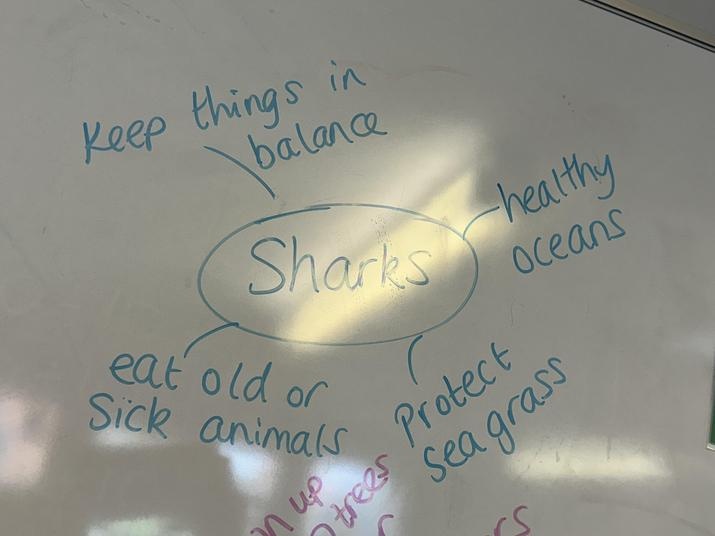 Keep things in
balance
healthy
oceans
Sharks
eat old or
Sick animals
Protect
sea grass
up
trees